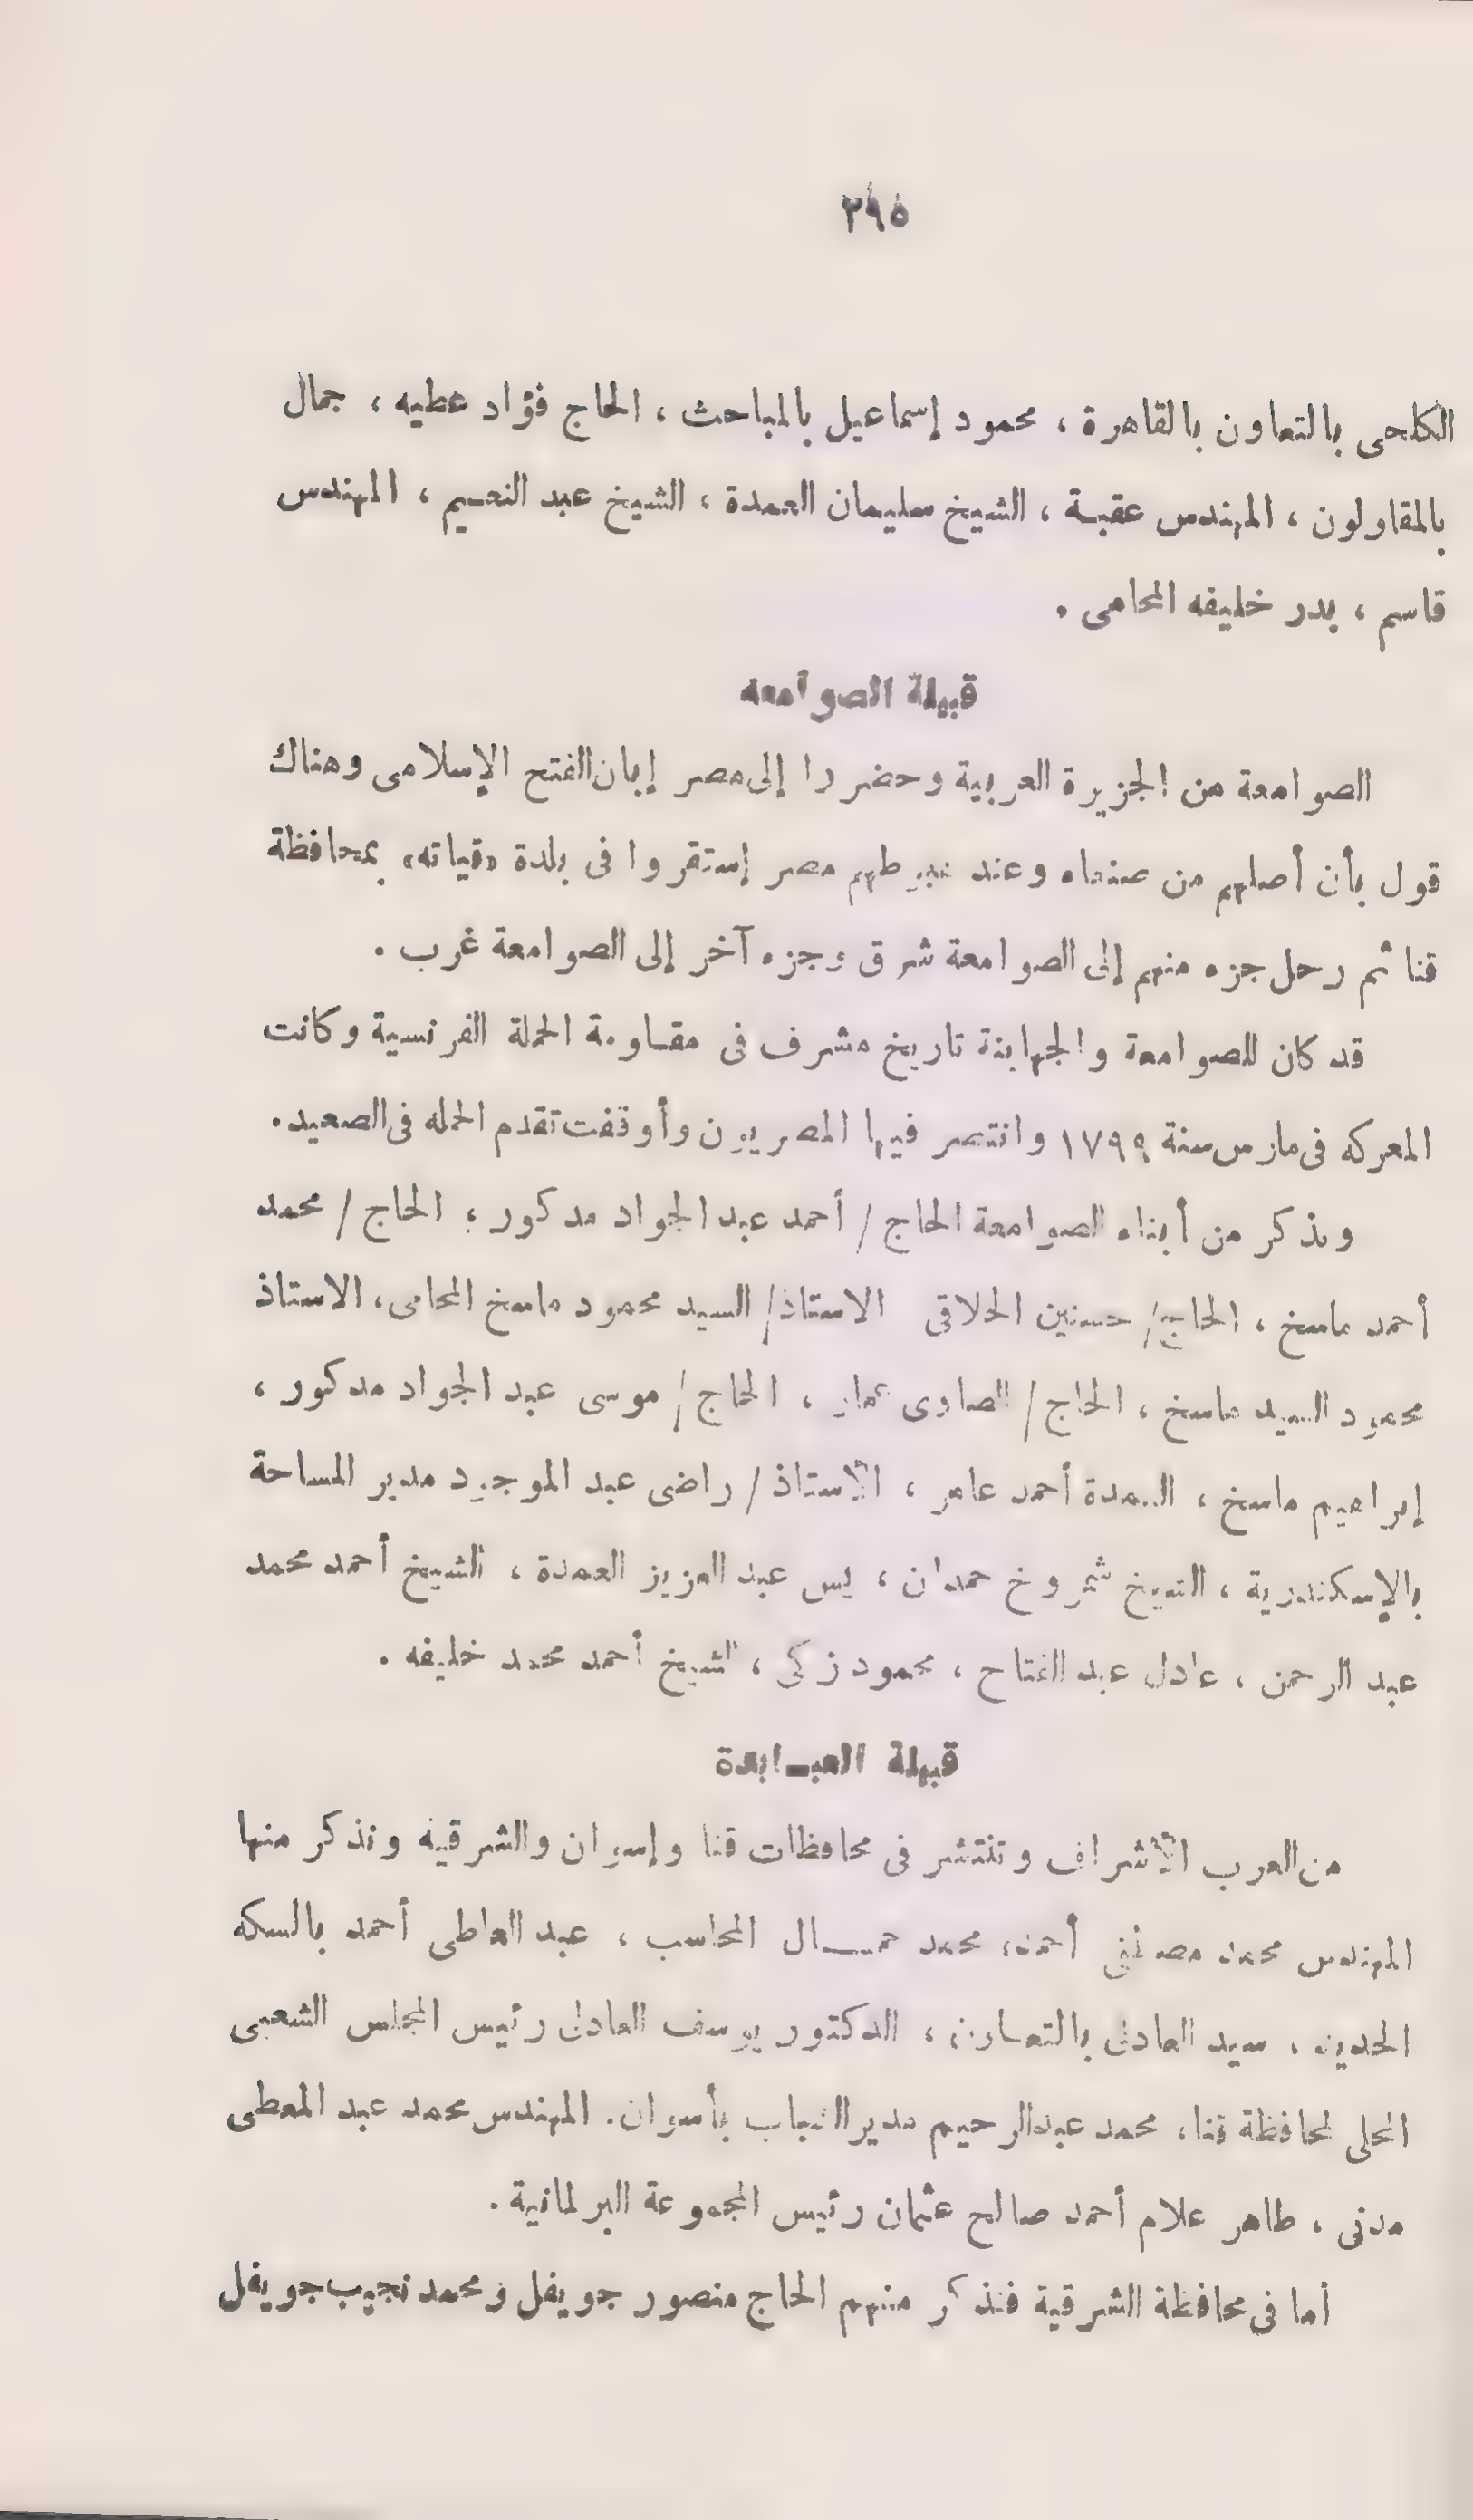 ٢٩٥
الكلحى بالتعاون بالقاهرة ، محمود إسماعيل بالمباحث ، الحاج فؤاد عطيه ، جمال
بالمقاولون ، المهندس عقبة ، الشيخ سليمان العمدة ، الشيخ عبد النعيم ، المهندس
قاسم ، بدر خليفه المحامى .
قبيلة الصوامعه
الصوامعة من الجزيرة العربية وحضروا إلى مصر إبان الفتح الإسلامى وهناك
قول بأن أصلهم من صنعاء وعند هبوطهم مصر إستقروا فى بلدة «قياته» بمحافظة
قنا ثم رحل جزء منهم إلى الصوامعة شرق وجزء آخر إلى الصوامعة غرب .
قد كان للصوامعة والجهابنة تاريخ مشرف فى مقاومة الحملة الفرنسية وكانت
المعركه فى مارس سنة ١٧٩٩ وانتصر فيها المصريون وأوقفت تقدم الحمله فى الصعيد .
ونذكر من أبناء الصوامعة الحاج / أحمد عبد الجواد مدكور ، الحاج / محمد
أحمد ماسخ ، الحاج / حسنين الحلاقى الاستاذ / السيد محمود ماسخ المحامى ، الاستاذ
محمود السيد ماسخ ، الحاج / الصاوى عمار ، الحاج / موسى عبد الجواد مدكور ،
إبراهيم ماسخ ، العمدة أحمد عامر ، الأستاذ / راضى عبد الموجود مدير المساحة
بالإسكندرية ، الشيخ شمروخ حمدان ، يس عبد العزيز العمدة ، الشيخ أحمد محمد
عبد الرحمن ، عادل عبد الفتاح ، محمود زكى ، الشيخ أحمد محمد خليفه .
قبيلة العبابدة
من العرب الأشراف وتنتشر فى محافظات قنا وإسوان والشرقيه ونذكر منها
المهندس محمد مصطفى أحمد، محمد جمال المحاسب ، عبد العاطى أحمد بالسكه
الحديد ، سيد العادلى بالتعاون ، الدكتور يوسف العادلى رئيس المجلس الشعبى
المحلى لمحافظة قنا، محمد عبدالرحيم مدير الشباب بأسوان. المهندس محمد عبد المعطى
مدنى ، طاهر علام أحمد صالح عثمان رئيس المجموعة البرلمانية .
أما فى محافظة الشرقية فنذكر منهم الحاج منصور جويفل ومحمد نجيب جويفل